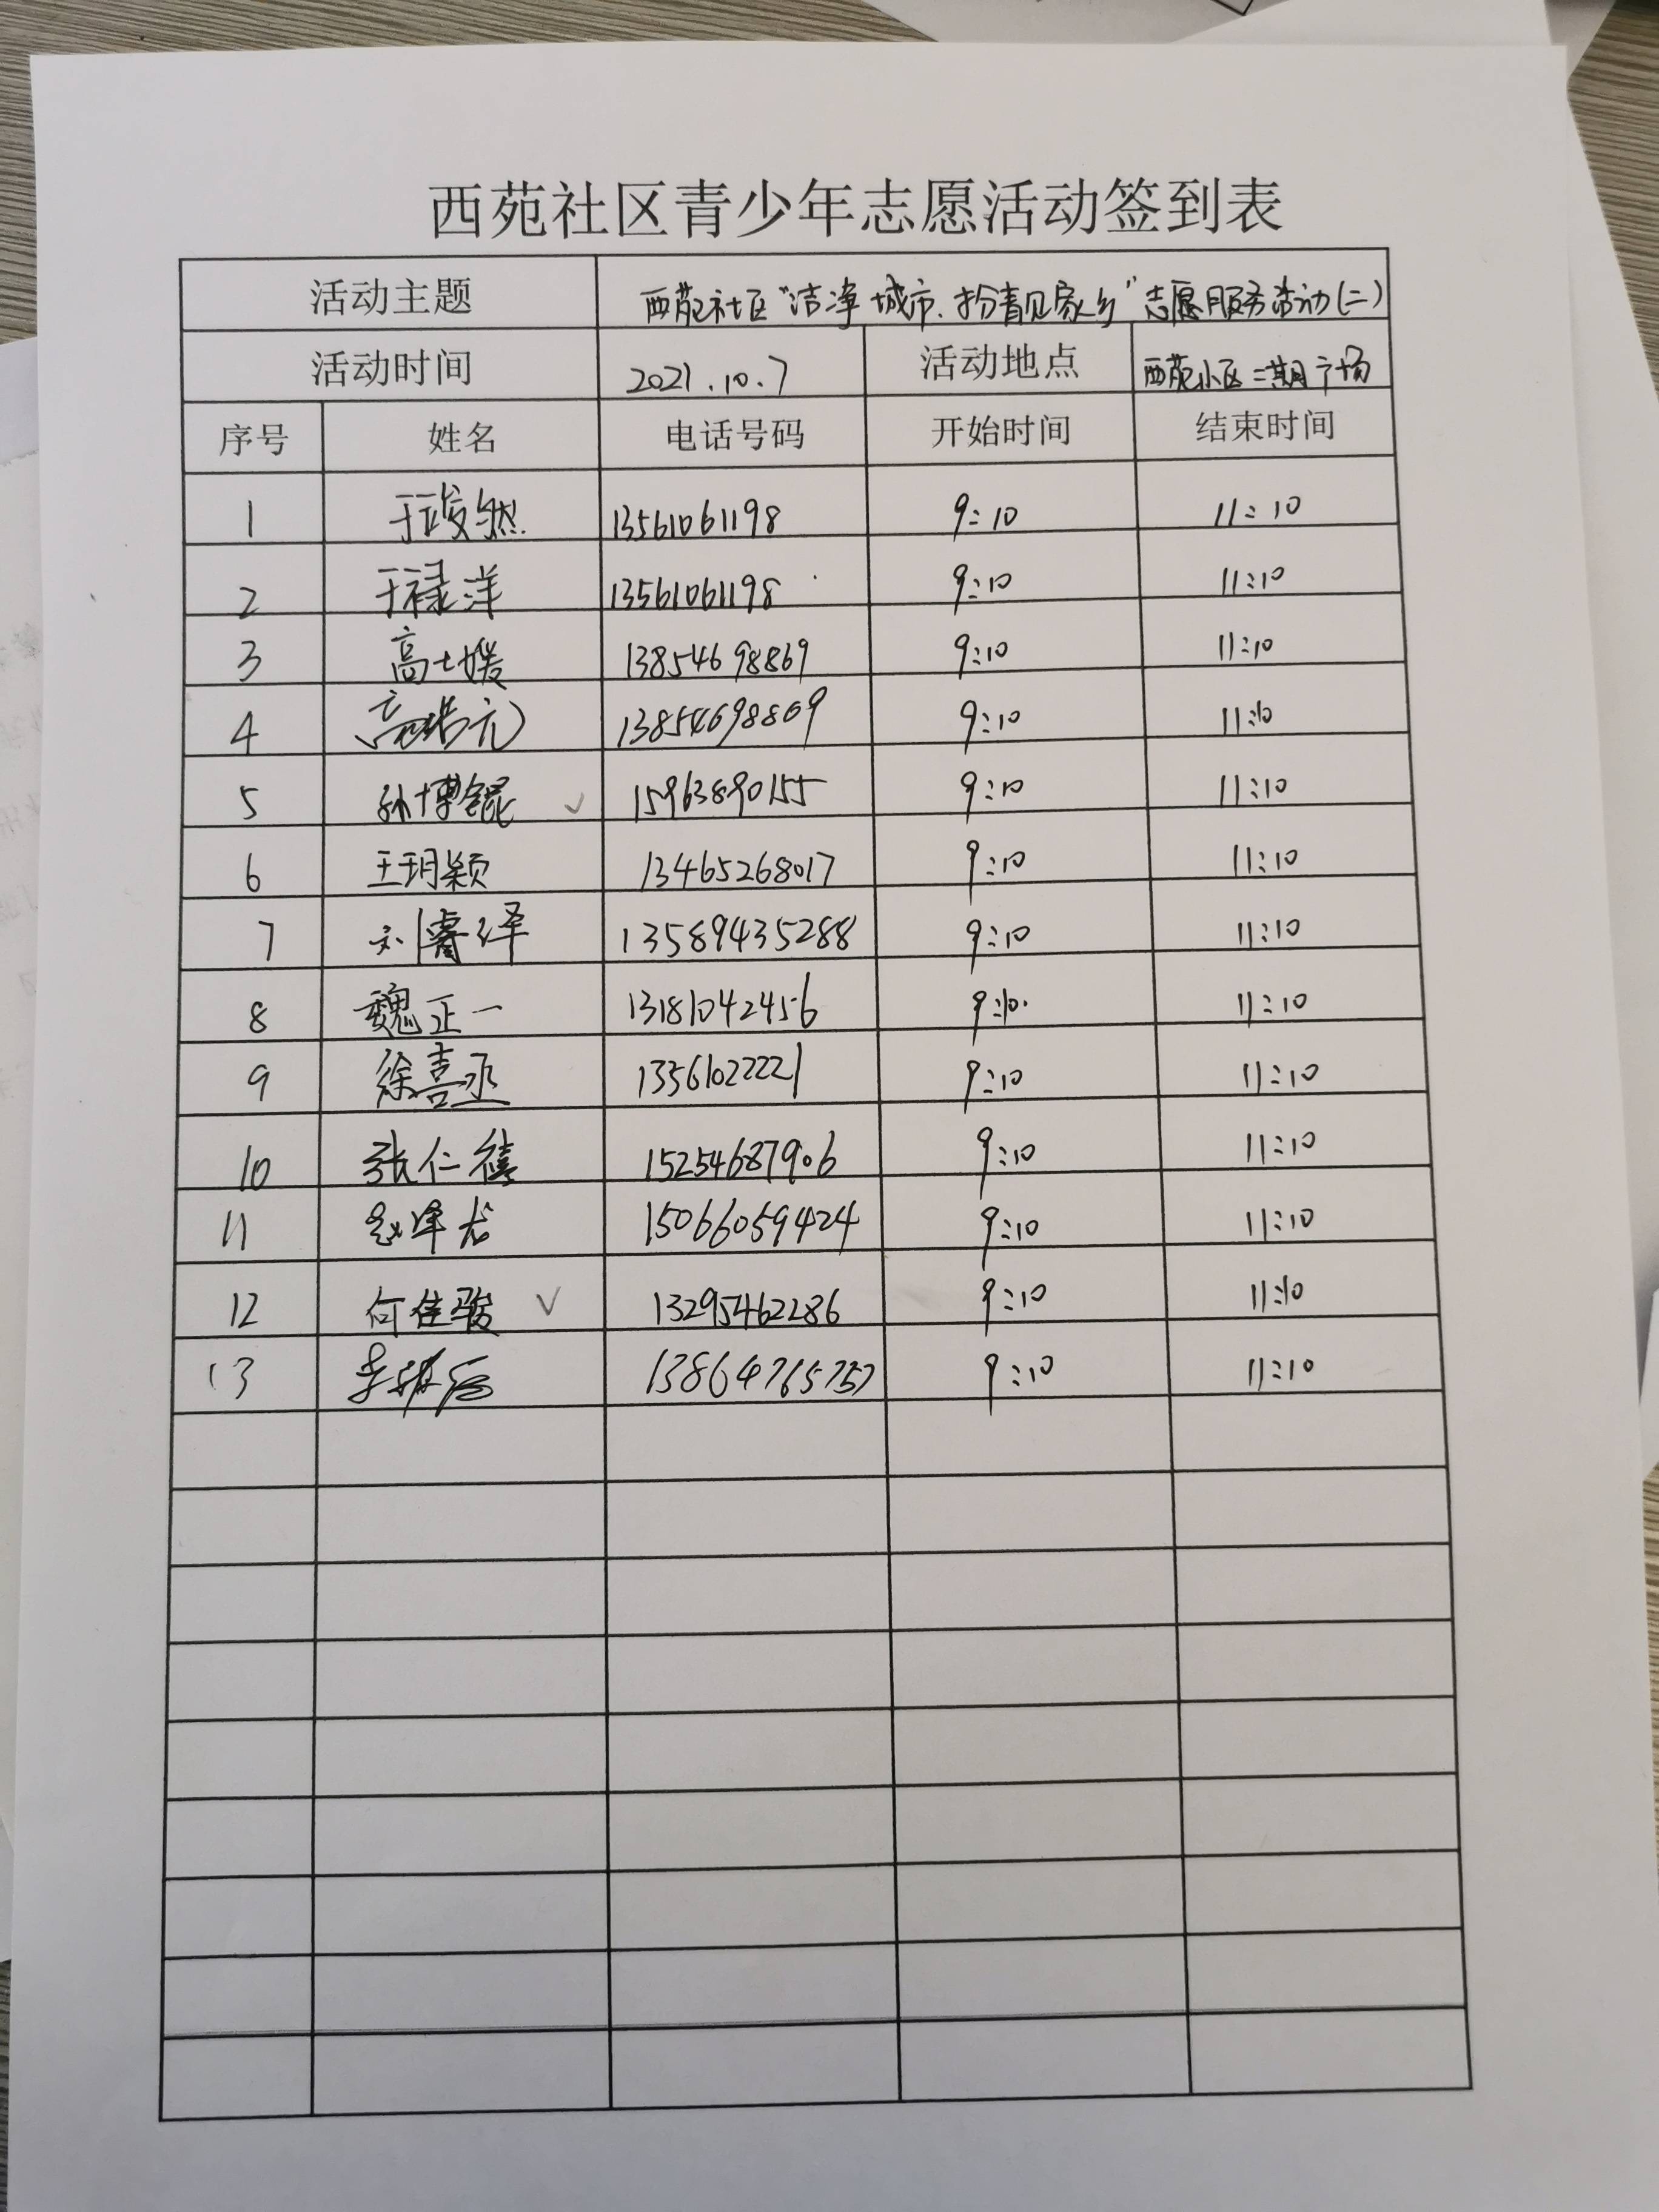 西苑社区青少年志愿活动签到表
活动主题 西苑社区"洁净城市.扮靓家乡"志愿服务活动(二)
活动时间 2021.10.7 活动地点 西苑小区二期广场
序号 姓名 电话号码 开始时间 结束时间
1 于竣然 13561061198 9:10 11:10
2 于禄洋 13561061198 9:10 11:10
3 高士媛 13854698869 9:10 11:10
4 13854698869 9:10 11:10
5 孙博锟 ✓ 15963890155 9:10 11:10
6 王玥颖 13465268017 9:10 11:10
7 刘睿泽 13589435288 9:10 11:10
8 魏正一 13181042456 9:10 11:10
9 徐喜丞 13561022221 9:10 11:10
10 张仁禧 15254687906 9:10 11:10
11 赵泽龙 15066059424 9:10 11:10
12 何佳骏 ✓ 13295462286 9:10 11:10
13 13864765757 9:10 11:10